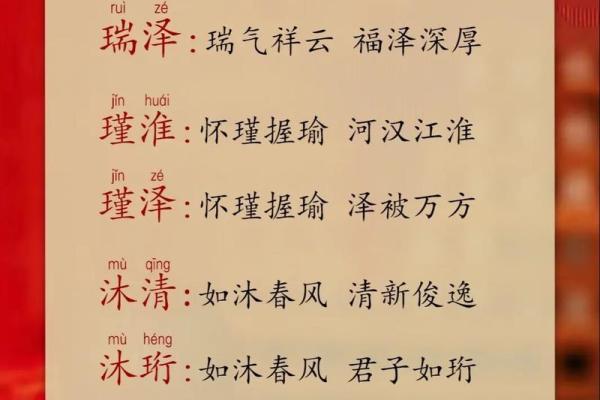 ruì zé
瑞泽：瑞气祥云 福泽深厚
jǐn huái
瑾淮：怀瑾握瑜 河汉江淮
jǐn zé
瑾泽：怀瑾握瑜 泽被万方
mù qīng
沐清：如沐春风 清新俊逸
mù héng
沐珩：如沐春风 君子如珩